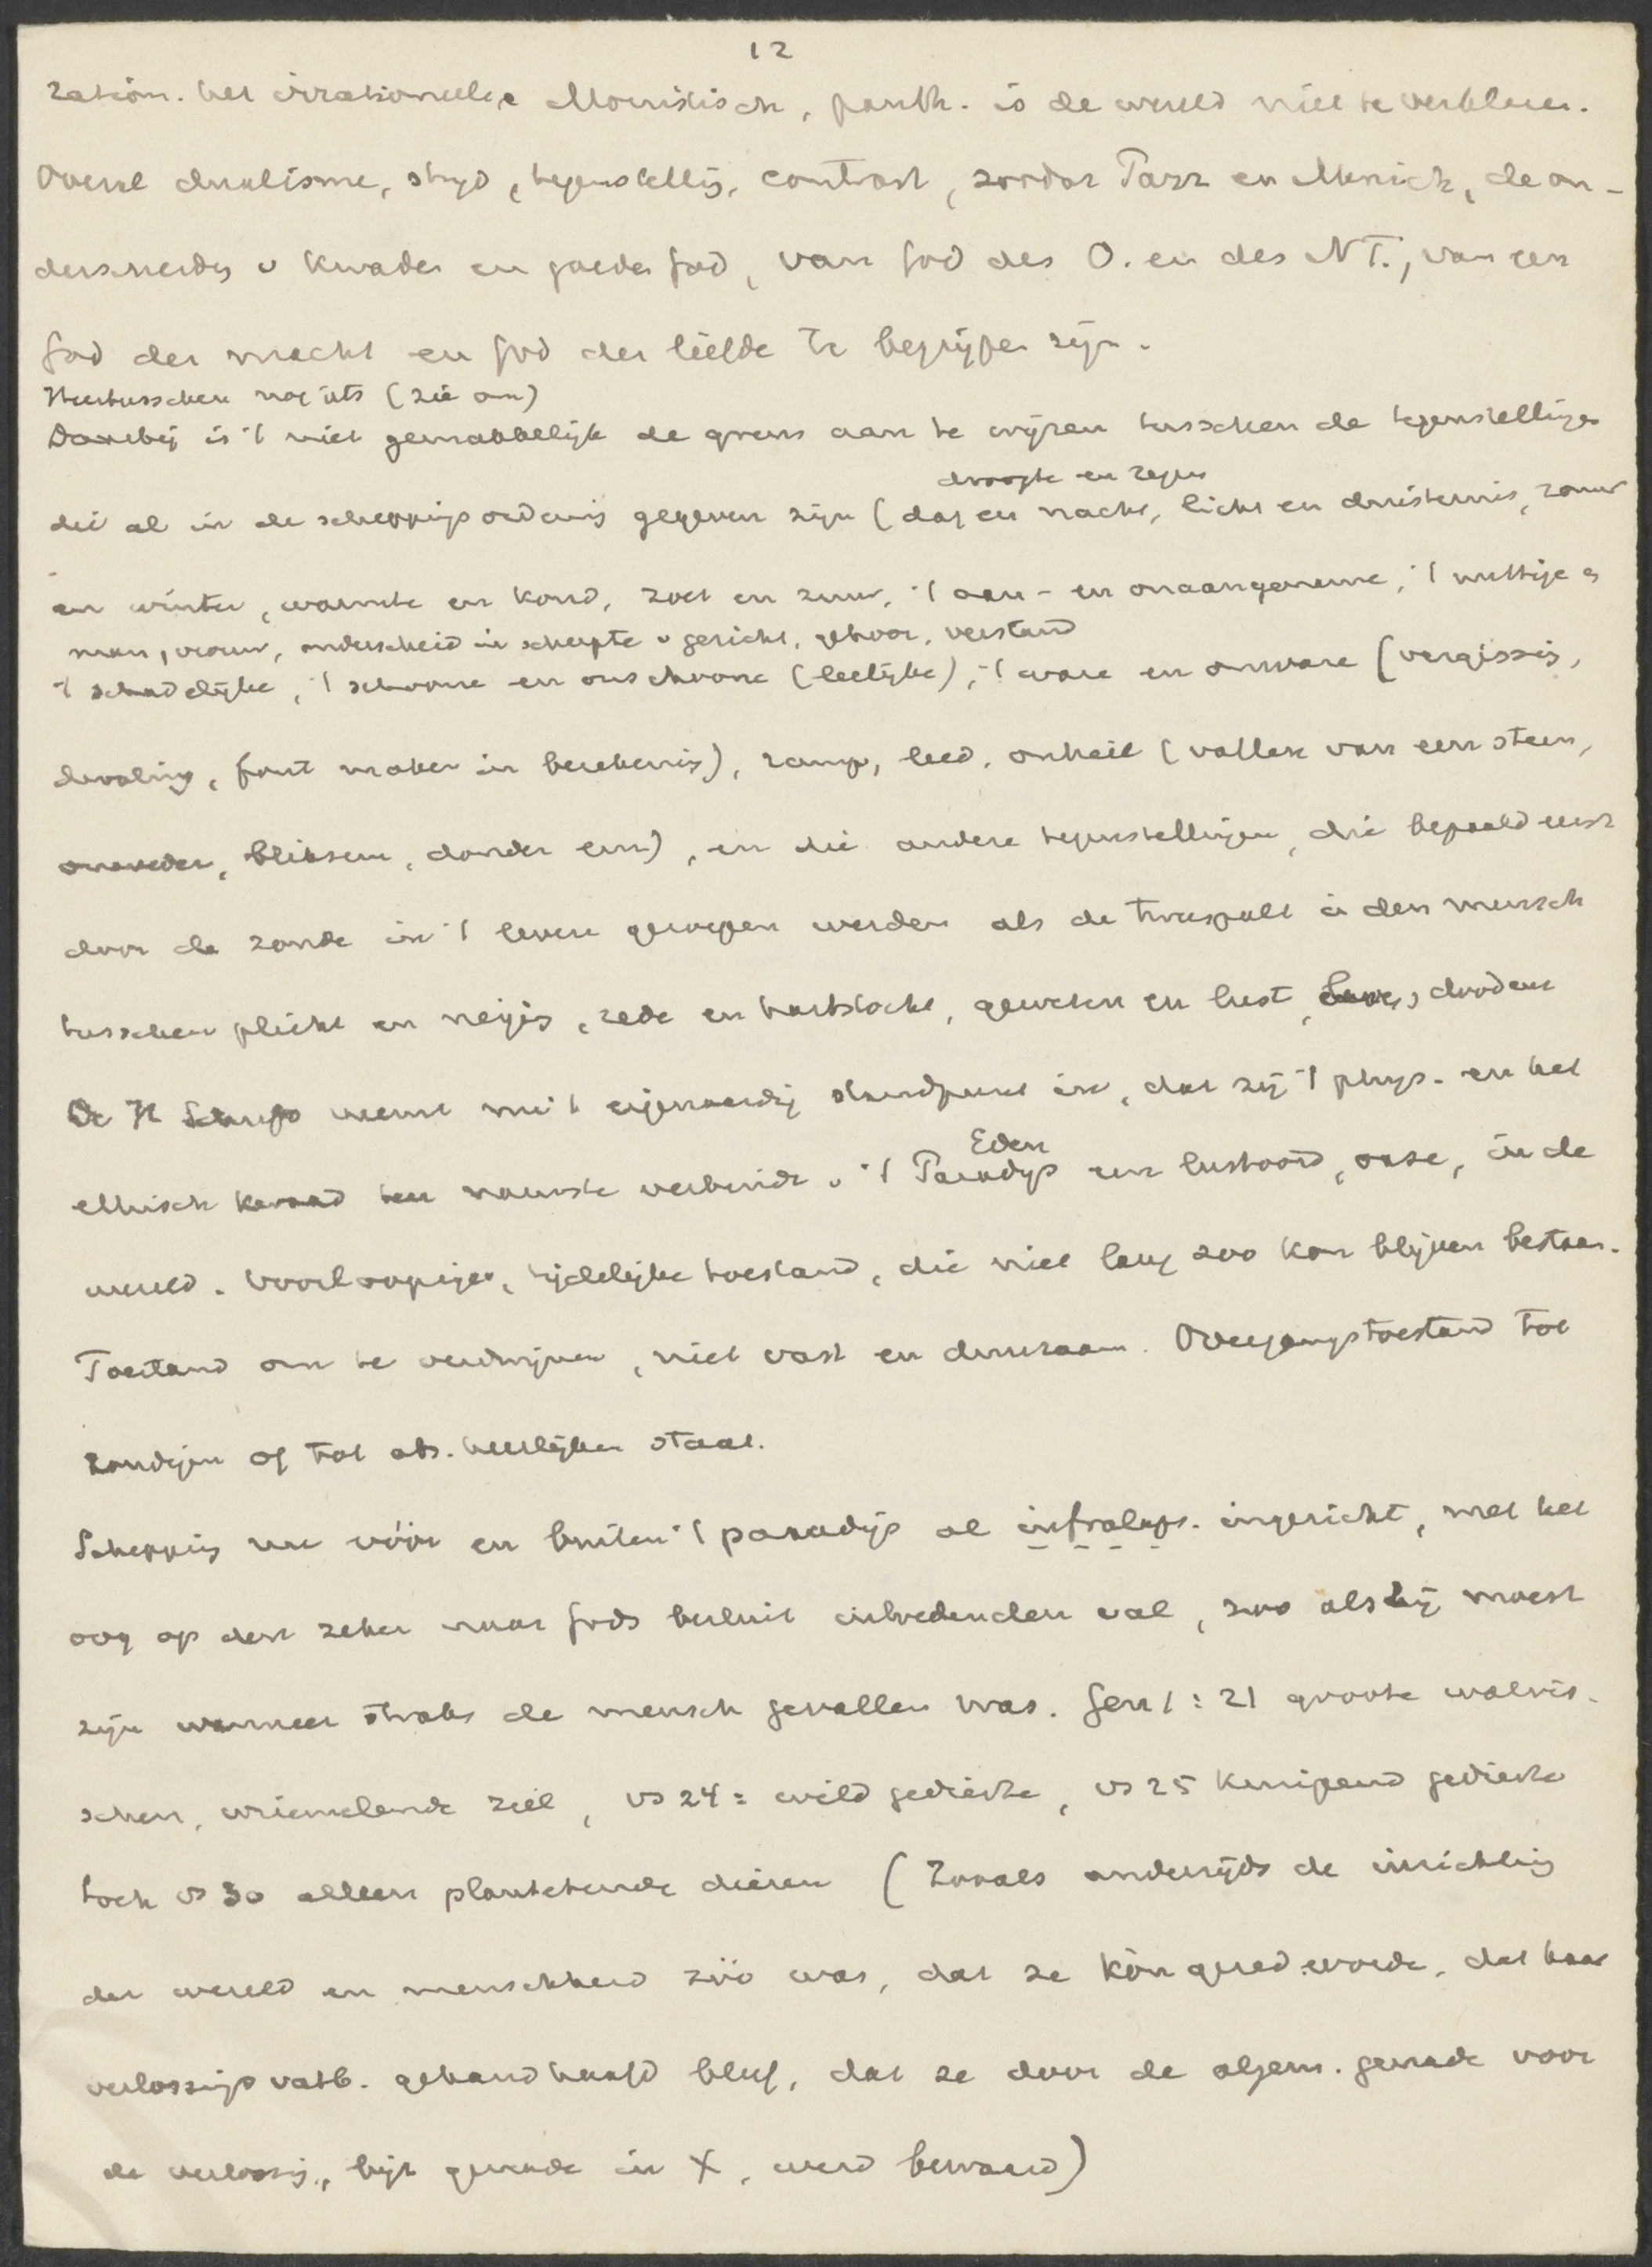 12
ration. het irrationeele Monistisch, panth. is de wereld niet te verklaren.
Overal dualisme, strijd, tegenstellig, contrast, zoodat Parz en Manich, de on-
derscheidg v kwaden en goeden God, van God des O. en des NT., van een
God der macht en God der liefde te begrijpen zijn.
Hiertusschen nog iets (zie om)
Daarbij is 't niet gemakkelijk de grens aan te wijzen tusschen de tegenstellingen
droogte en regen
die al in de scheppingsordening gegeven zijn (dag en nacht, licht en duisternis, zomer
en winter, warmte en koud, zoet en zuur, 't aan- en onaangename, 't nuttige en
man, vrouw, onderscheid in scherpte v gezicht, gehoor, verstand
't schadelijke, 't schoone en onschoone (leelijke), 't ware en onware (vergissig,
dwaling, fout maken in berekenig), ramp, leed, onheil (vallen van een steen,
onweder, bliksem, donder enz), en die andere tegenstellingen, die bepaald eerst
door de zonde in 't leven geroepen werden als de tweespalt in den mensch
tusschen plicht en neigig, rede en hartstocht, geweten en lust, doodend
De H Schrift neemt nu 't eigenaardig standpunt in, dat zij 't phys. en het
Eden
ethisch kwaad ten nauwste verbindt v 't Paradijs een lustoord, oase, in de
wereld. Voorloopige, tijdelijke toestand, die niet lang zoo kon blijven bestaan.
Toestand om te verdwijnen, niet vast en duurzaam. Overgangstoestand tot
zondigen of tot abs. heerlijken staat.
Scheppig nu vóór en buiten 't paradijs al infralaps. ingericht, met het
oog op den zeker naar Gods besluit intredenden val, zoo als hij moest
zijn wanneer straks de mensch gevallen was. Gen 1:21 groote walvis-
schen, wriemelende ziel, vs 24: wild gedierte, vs 25 kruipend gedierte
toch vs 30 alleen plantetende dieren (Zooals anderzijds de inrichtig
der wereld en menschheid zóó was, dat ze kòn gered worde, dat haar
verlossings vatb. gehandhaafd bleef, dat ze door de algem. genade voor
de verlossig, bijz genade in X, werd bewaard)